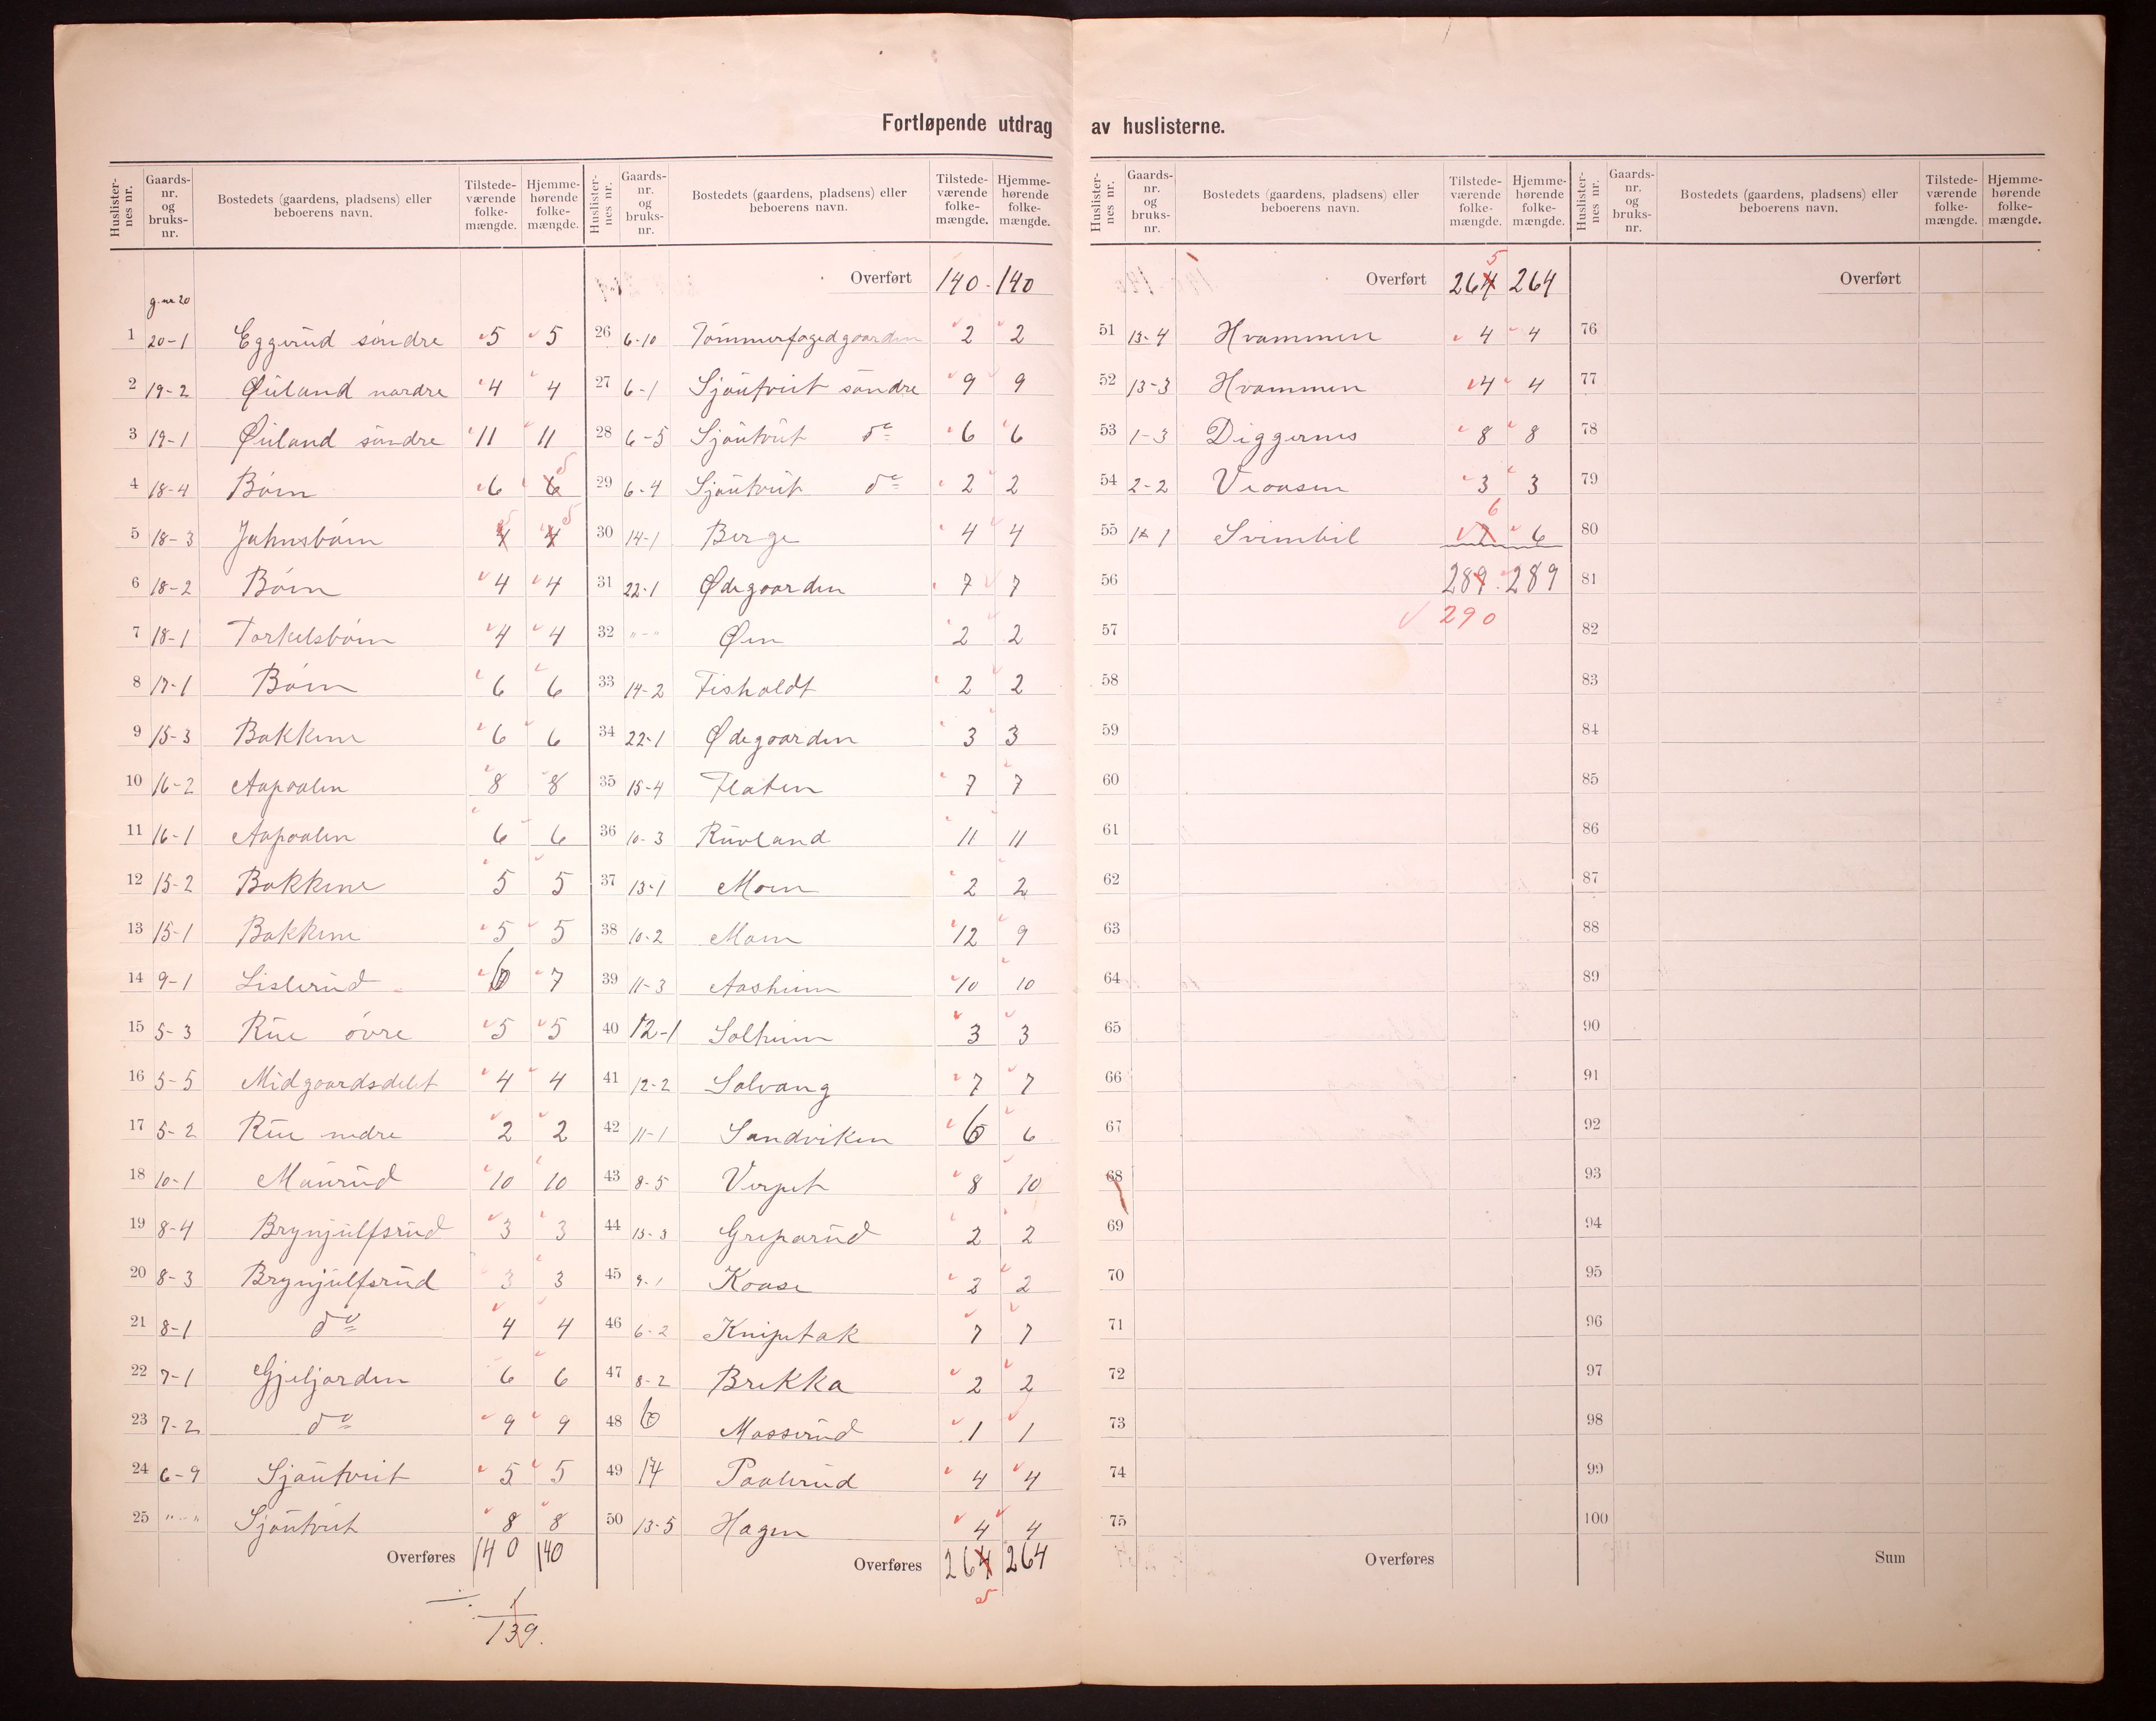 Fortløpende utdrag av huslisterne.
Huslister-nes nr. Gaards-nr. og bruks-nr. Bostedets (gaardens, pladsens) eller beboerens navn. Tilstede-værende folke-mængde. Hjemme-hørende folke-mængde.
g. nr 20
1 20-1 Eggerud søndre 5 5
2 19-2 Øiland nordre 4 4
3 19-1 Øiland søndre 11 11
4 18-4 Bøen 6 6 5
5 18-3 Jahnsbøen 4 5 4 5
6 18-2 Bøen 4 4
7 18-1 Torkelsbøen 4 4
8 17-1 Bøen 6 6
9 15-3 Bakkene 6 6
10 16-2 Aapaalen 8 8
11 16-1 Aapaalen 6 6
12 15-2 Bakkene 5 5
13 15-1 Bakkene 5 5
14 9-1 Lislerud 6 7
15 5-3 Rue øvre 5 5
16 5-5 Midgaardsdelet 4 4
17 5-2 Rue nedre 2 2
18 10-1 Maurud 10 10
19 8-4 Brynjulfsrud 3 3
20 8-3 Brynjulfsrud 3 3
21 8-1 do 4 4
22 7-1 Gjeljorden 6 6
23 7-2 do 9 9
24 6-9 Sjøutveit 5 5
25 " - " Sjøutveit 8 8
Overføres 140 140
÷ 1
139.
Huslister-nes nr. Gaards-nr. og bruks-nr. Bostedets (gaardens, pladsens) eller beboerens navn. Tilstede-værende folke-mængde. Hjemme-hørende folke-mængde.
Overført 140 - 140
26 6-10 Tømmerfogedgaarden 2 2
27 6-1 Sjøutveit søndre 9 9
28 6-5 Sjøutveit do 6 6
29 6-4 Sjøutveit do 2 2
30 14-1 Berge 4 4
31 22-1 Ødegaarden 7 7
32 " - " Øen 2 2
33 14-2 Fisholdt 2 2
34 22-1 Ødegaarden 3 3
35 15-4 Flaten 7 7
36 10-3 Ruvland 11 11
37 13-1 Moen 2 2
38 10-2 Moen 12 9
39 11-3 Aasheim 10 10
40 12-1 Solheim 3 3
41 12-2 Solvang 7 7
42 11-1 Sandviken 6 6
43 8-5 Verpet 8 10
44 15-3 Griparud 2 2
45 9-1 Kaase 2 2
46 6-2 Knipetak 7 7
47 8-2 Brekka 2 2
48 6 Masserud 1 1
49 14 Paalerud 4 4
50 13-5 Hagen 4 4
Overføres 264 264
5
Huslister-nes nr. Gaards-nr. og bruks-nr. Bostedets (gaardens, pladsens) eller beboerens navn. Tilstede-værende folke-mængde. Hjemme-hørende folke-mængde.
5
Overført 264 264
51 13-4 Hvammen 4 4
52 13-3 Hvammen 4 4
53 1-3 Diggernes 8 8
54 2-2 Vraasen 3 3
6
55 1-1 Svimbil 7 6
56 289 289
57 290
58
59
60
61
62
63
64
65
66
67
68
69
70
71
72
73
74
75
Overføres
Huslister-nes nr. Gaards-nr. og bruks-nr. Bostedets (gaardens, pladsens) eller beboerens navn. Tilstede-værende folke-mængde. Hjemme-hørende folke-mængde.
Overført
76
77
78
79
80
81
82
83
84
85
86
87
88
89
90
91
92
93
94
95
96
97
98
99
100
Sum